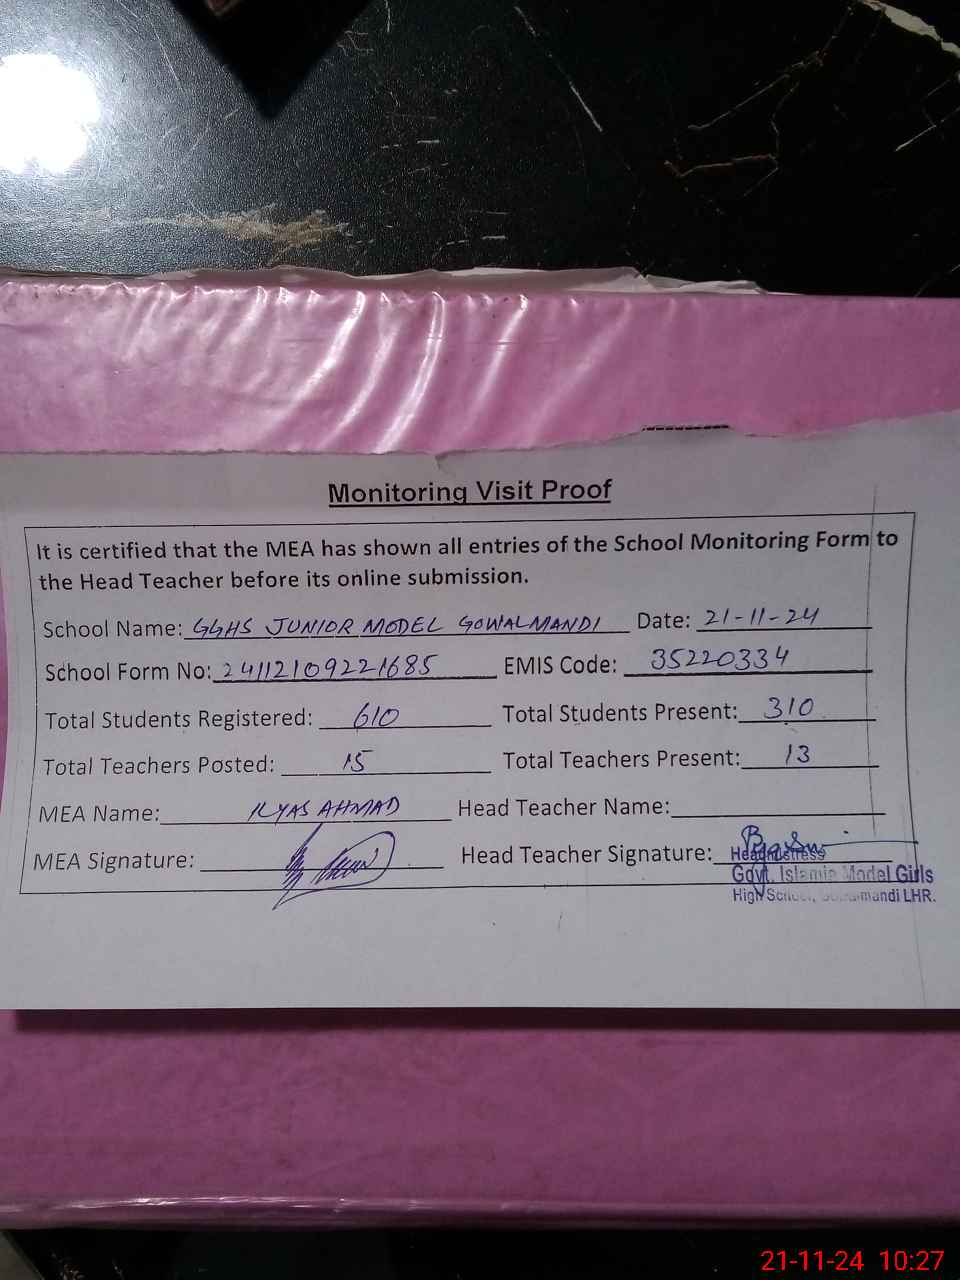 Monitoring Visit Proof
It is certified that the MEA has shown all entries of the School Monitoring Form to
the Head Teacher before its online submission.
School Name: GGHS JUNIOR MODEL GOWALMANDI Date: 21-11-24
School Form No: 24112109221685 EMIS Code: 35220334
Total Students Registered: 610 Total Students Present: 310
Total Teachers Posted: 15 Total Teachers Present: 13
MEA Name: ILYAS AHMAD Head Teacher Name:
MEA Signature: Head Teacher Signature:
Headmistress
Govt. Islamia Model Girls
High School, LHR.
21-11-24 10:27